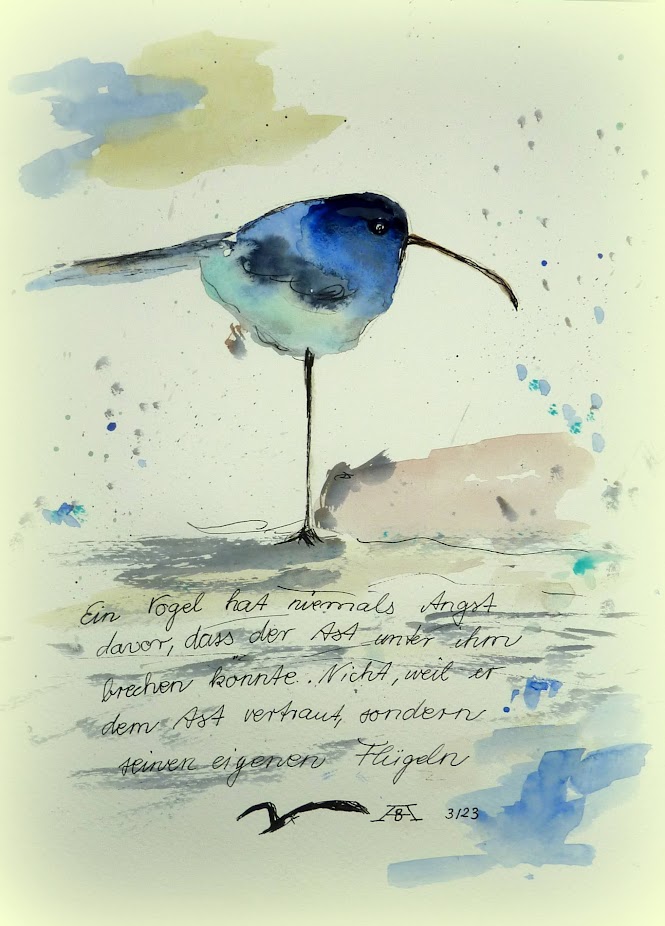 Ein Vogel hat niemals Angst
davor, dass der Ast unter ihm
brechen könnte. Nicht, weil er
dem Ast vertraut, sondern
seinen eigenen Flügeln
3/23